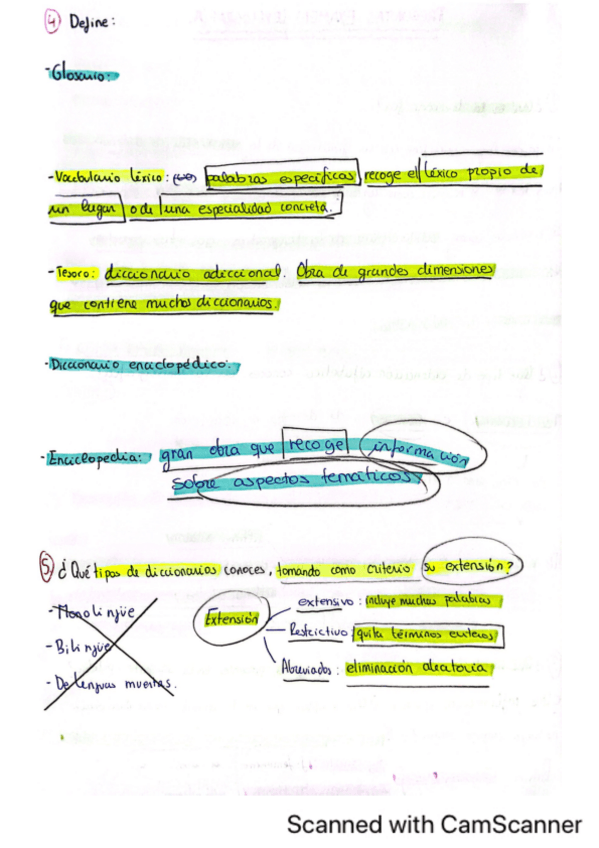 ④ Define:
- Glosario:
- Vocabulario léxico: palabras específicas, recoge el léxico propio de
un lugar o de una especialidad concreta.
- Tesoro: diccionario adiccional. Obra de grandes dimensiones
que contiene muchos diccionarios.
- Diccionario enciclopédico:
- Enciclopedia: gran obra que recoge información
sobre aspectos temáticos.
⑤ ¿Qué tipos de diccionarios conoces, tomando como criterio su extensión?
- Monolingüe
- Bilingüe
- De lenguas muertas.
Extensión
extensivo: incluye muchas palabras
Restrictivo: quita términos enteros
Abreviados: eliminación aleatoria
Scanned with CamScanner